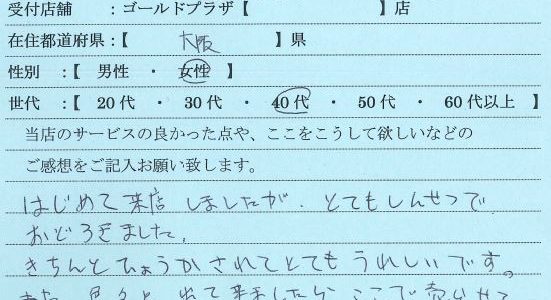 受付店舗 ：ゴールドプラザ【 】店
在住都道府県：【 大阪 】県
性別 ：【 男性 ・ 女性 】
世代 ：【 20代 ・ 30代 ・ 40代 ・ 50代 ・ 60代以上 】
当店のサービスの良かった点や、ここをこうして欲しいなどの
ご感想をご記入お願い致します。
はじめて来店しましたが、とてもしんせつで
おどろきました。
きちんとひょうかされてとてもうれしいです。
また、色々と出て来ましたら、ここで売らせて